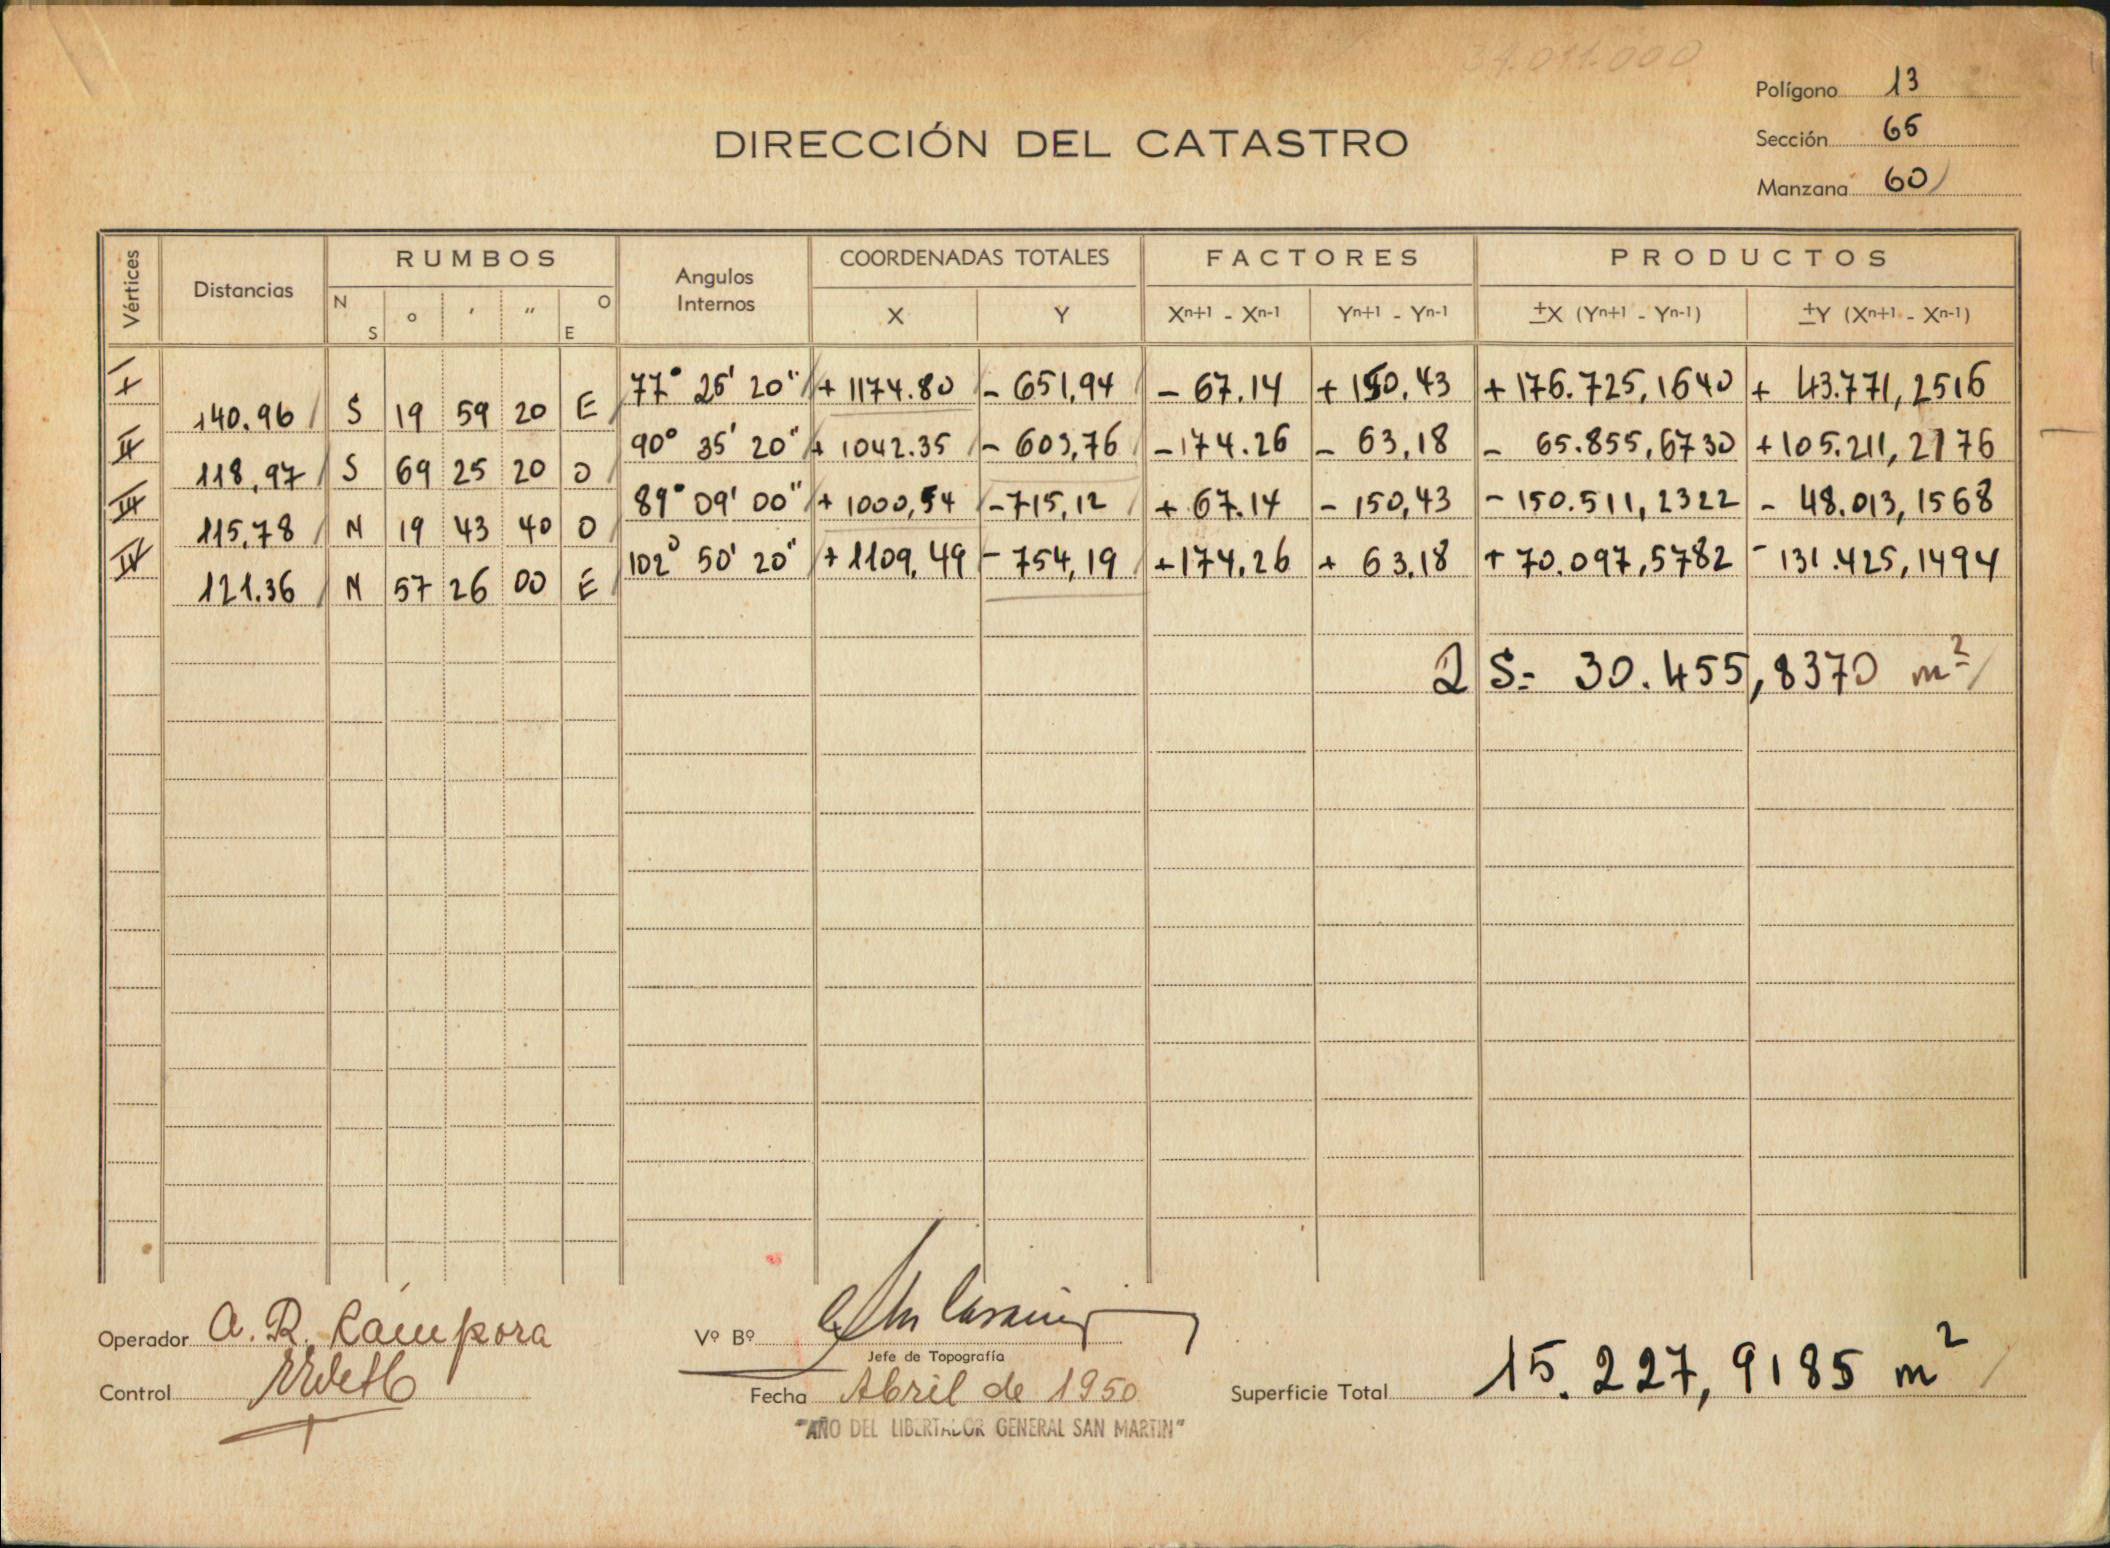 34.011.000
Polígono 13
DIRECCIÓN DEL CATASTRO
Sección 65
Manzana 60
Vértices Distancias RUMBOS Angulos Internos COORDENADAS TOTALES FACTORES PRODUCTOS
N S ° ' " O E X Y Xn+1 - Xn-1 Yn+1 - Yn-1 ±X (Yn+1 - Yn-1) ±Y (Xn+1 - Xn-1)
I 77° 25' 20" + 1174.80 - 651,94 - 67.14 + 150,43 + 176.725,1640 + 43.771,2516
140.96 S 19 59 20 E
II 90° 35' 20" + 1042.35 - 603,76 - 174.26 - 63,18 - 65.855,6730 + 105.211,2176
118,97 S 69 25 20 O
III 89° 09' 00" + 1000,54 - 715,12 + 67.14 - 150,43 - 150.511,2322 - 48.013,1568
115,78 N 19 43 40 O
IV 102° 50' 20" + 1109,49 - 754,19 + 174,26 + 63,18 + 70.097,5782 - 131.425,1494
121.36 N 57 26 00 E
2 S= 30.455,8370 m²
Operador A. R. Cámpora
Vº Bº
Jefe de Topografía
Control
Fecha Abril de 1950
Superficie Total 15.227,9185 m²
"AÑO DEL LIBERTADOR GENERAL SAN MARTIN"